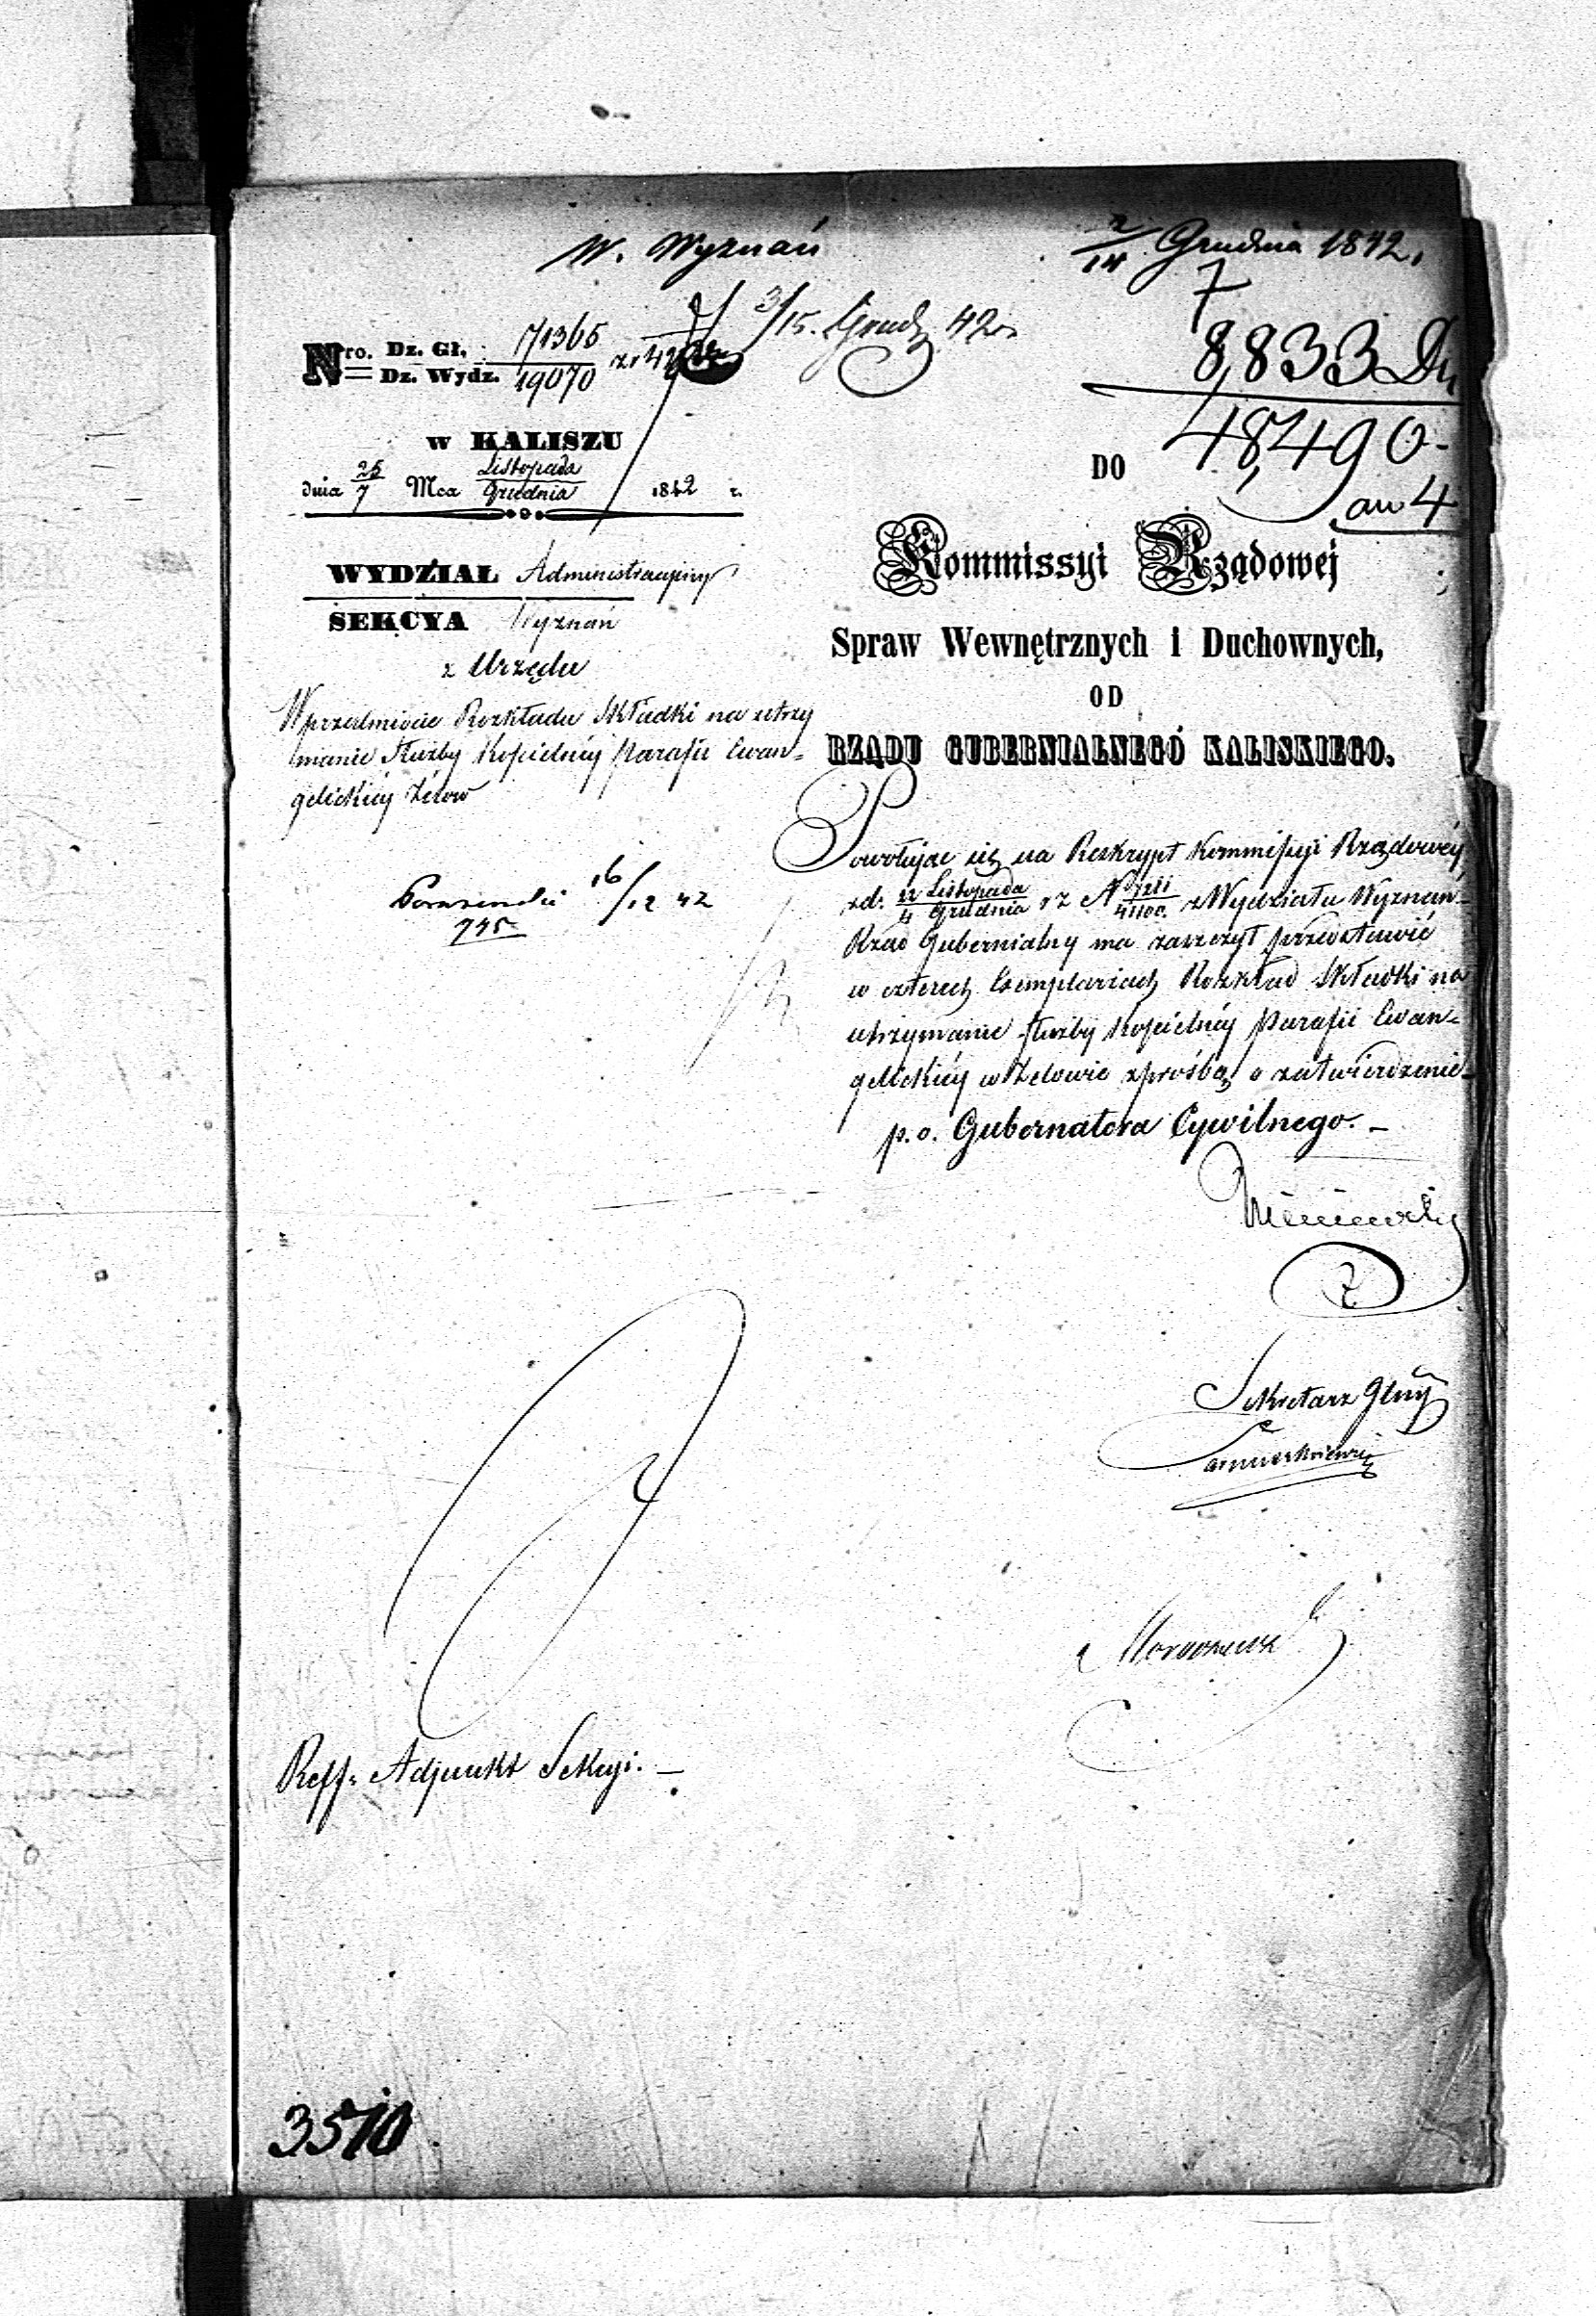 W. Wyznań
2/14 Grudnia 1842.
3/15. Grud. 42
7
8,833 Du
48,490
an 4
Nro. Dz. Gł. 71365
Dz. Wydz. 19070
w KALISZU
dnia 25/7 Mca Listopada/Grudnia 1842 r.
WYDZIAŁ Administracyjny
SEKCYA Wyznań
z Urzędu
W przedmiocie Rozkładu Składki na utrzy
manie Służby Kościelnéj parafii Ewan-
gelickiéj Zelow
16/12 42
745
DO
Kommissyi Rządowej
Spraw Wewnętrznych i Duchownych,
OD
RZĄDU GUBERNIALNEGO KALISKIEGO.
Powołując się na Reskrypt Kommissyi Rządowéj
z d. 22 Listopada/4 Grudnia r z N z Wydziału Wyznań
Rząd Gubernialny ma zaszczyt przedstawić
w czterech Exemplarzach Rozkład Składki na
utrzymanie służby Kościelnéj Parafii Ewan-
gelickiéj w Zelowie z prośbą o zatwierdzenie
p. o. Gubernatora Cywilnego.
Sekretarz Głny
Reff. Adjunkt Sekcyi.
3510